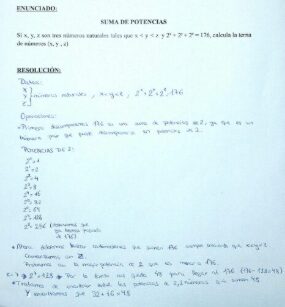 ENUNCIADO:
SUMA DE POTENCIAS
Si x, y, z son tres números naturales tales que x < y < z y 2ˣ + 2ʸ + 2ᶻ = 176, calcula la terna
de números (x, y, z)
RESOLUCIÓN:
Datos:
x
y números naturales, x<y<z, 2ˣ+2ʸ+2ᶻ=176
z
Operaciones:
Primero descomponemos 176 en una suma de potencias de 2, ya que es un
número par se puede descomponer en potencias de 2.
POTENCIAS DE 2:
2⁰=1
2¹=2
2²=4
2³=8
2⁴=16
2⁵=32
2⁶=64
2⁷=128
2⁸=256
176)
Ahora debemos buscar combinaciones que sumen 176 siempre que x<y<z
Comenzamos con z.
Probamos con la mayor potencia de 2 que es menor a 176.
2⁷=128 → Por lo tanto nos queda 48 para llegar al 176 (176-128=48)
Tratamos de encontrar entre las potencias de 2, 2 números que sumen 48
Y encontramos que 32+16=48